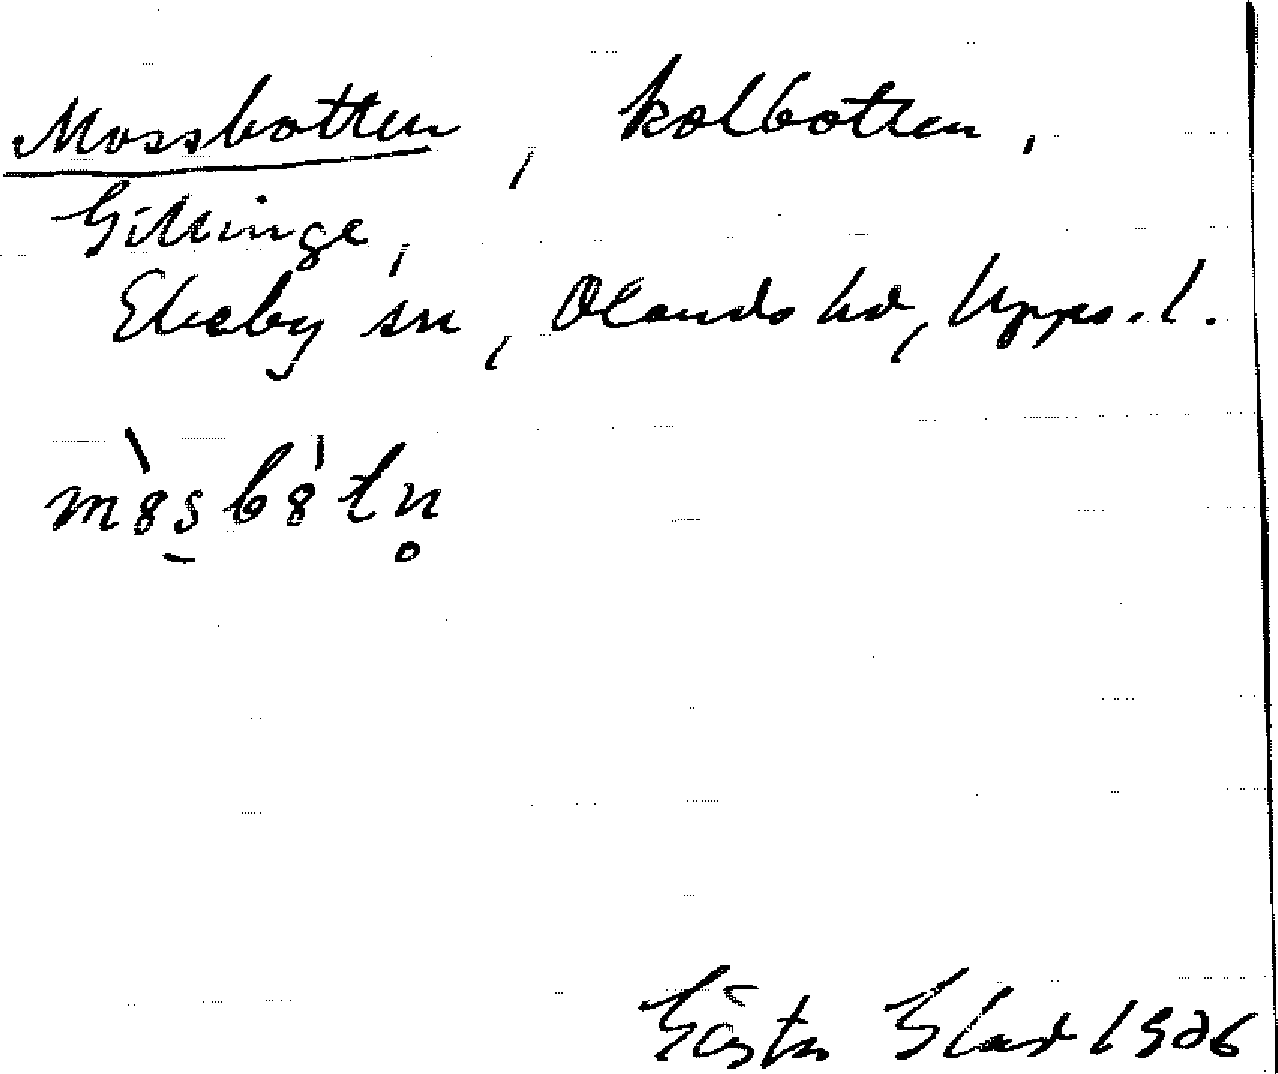 Mossbotten, kolbotten,
Gillinge,
Ekeby sn, Olands hd, Upps. l.
mò̀8s̠b8̍tn̥
Gösta 1926